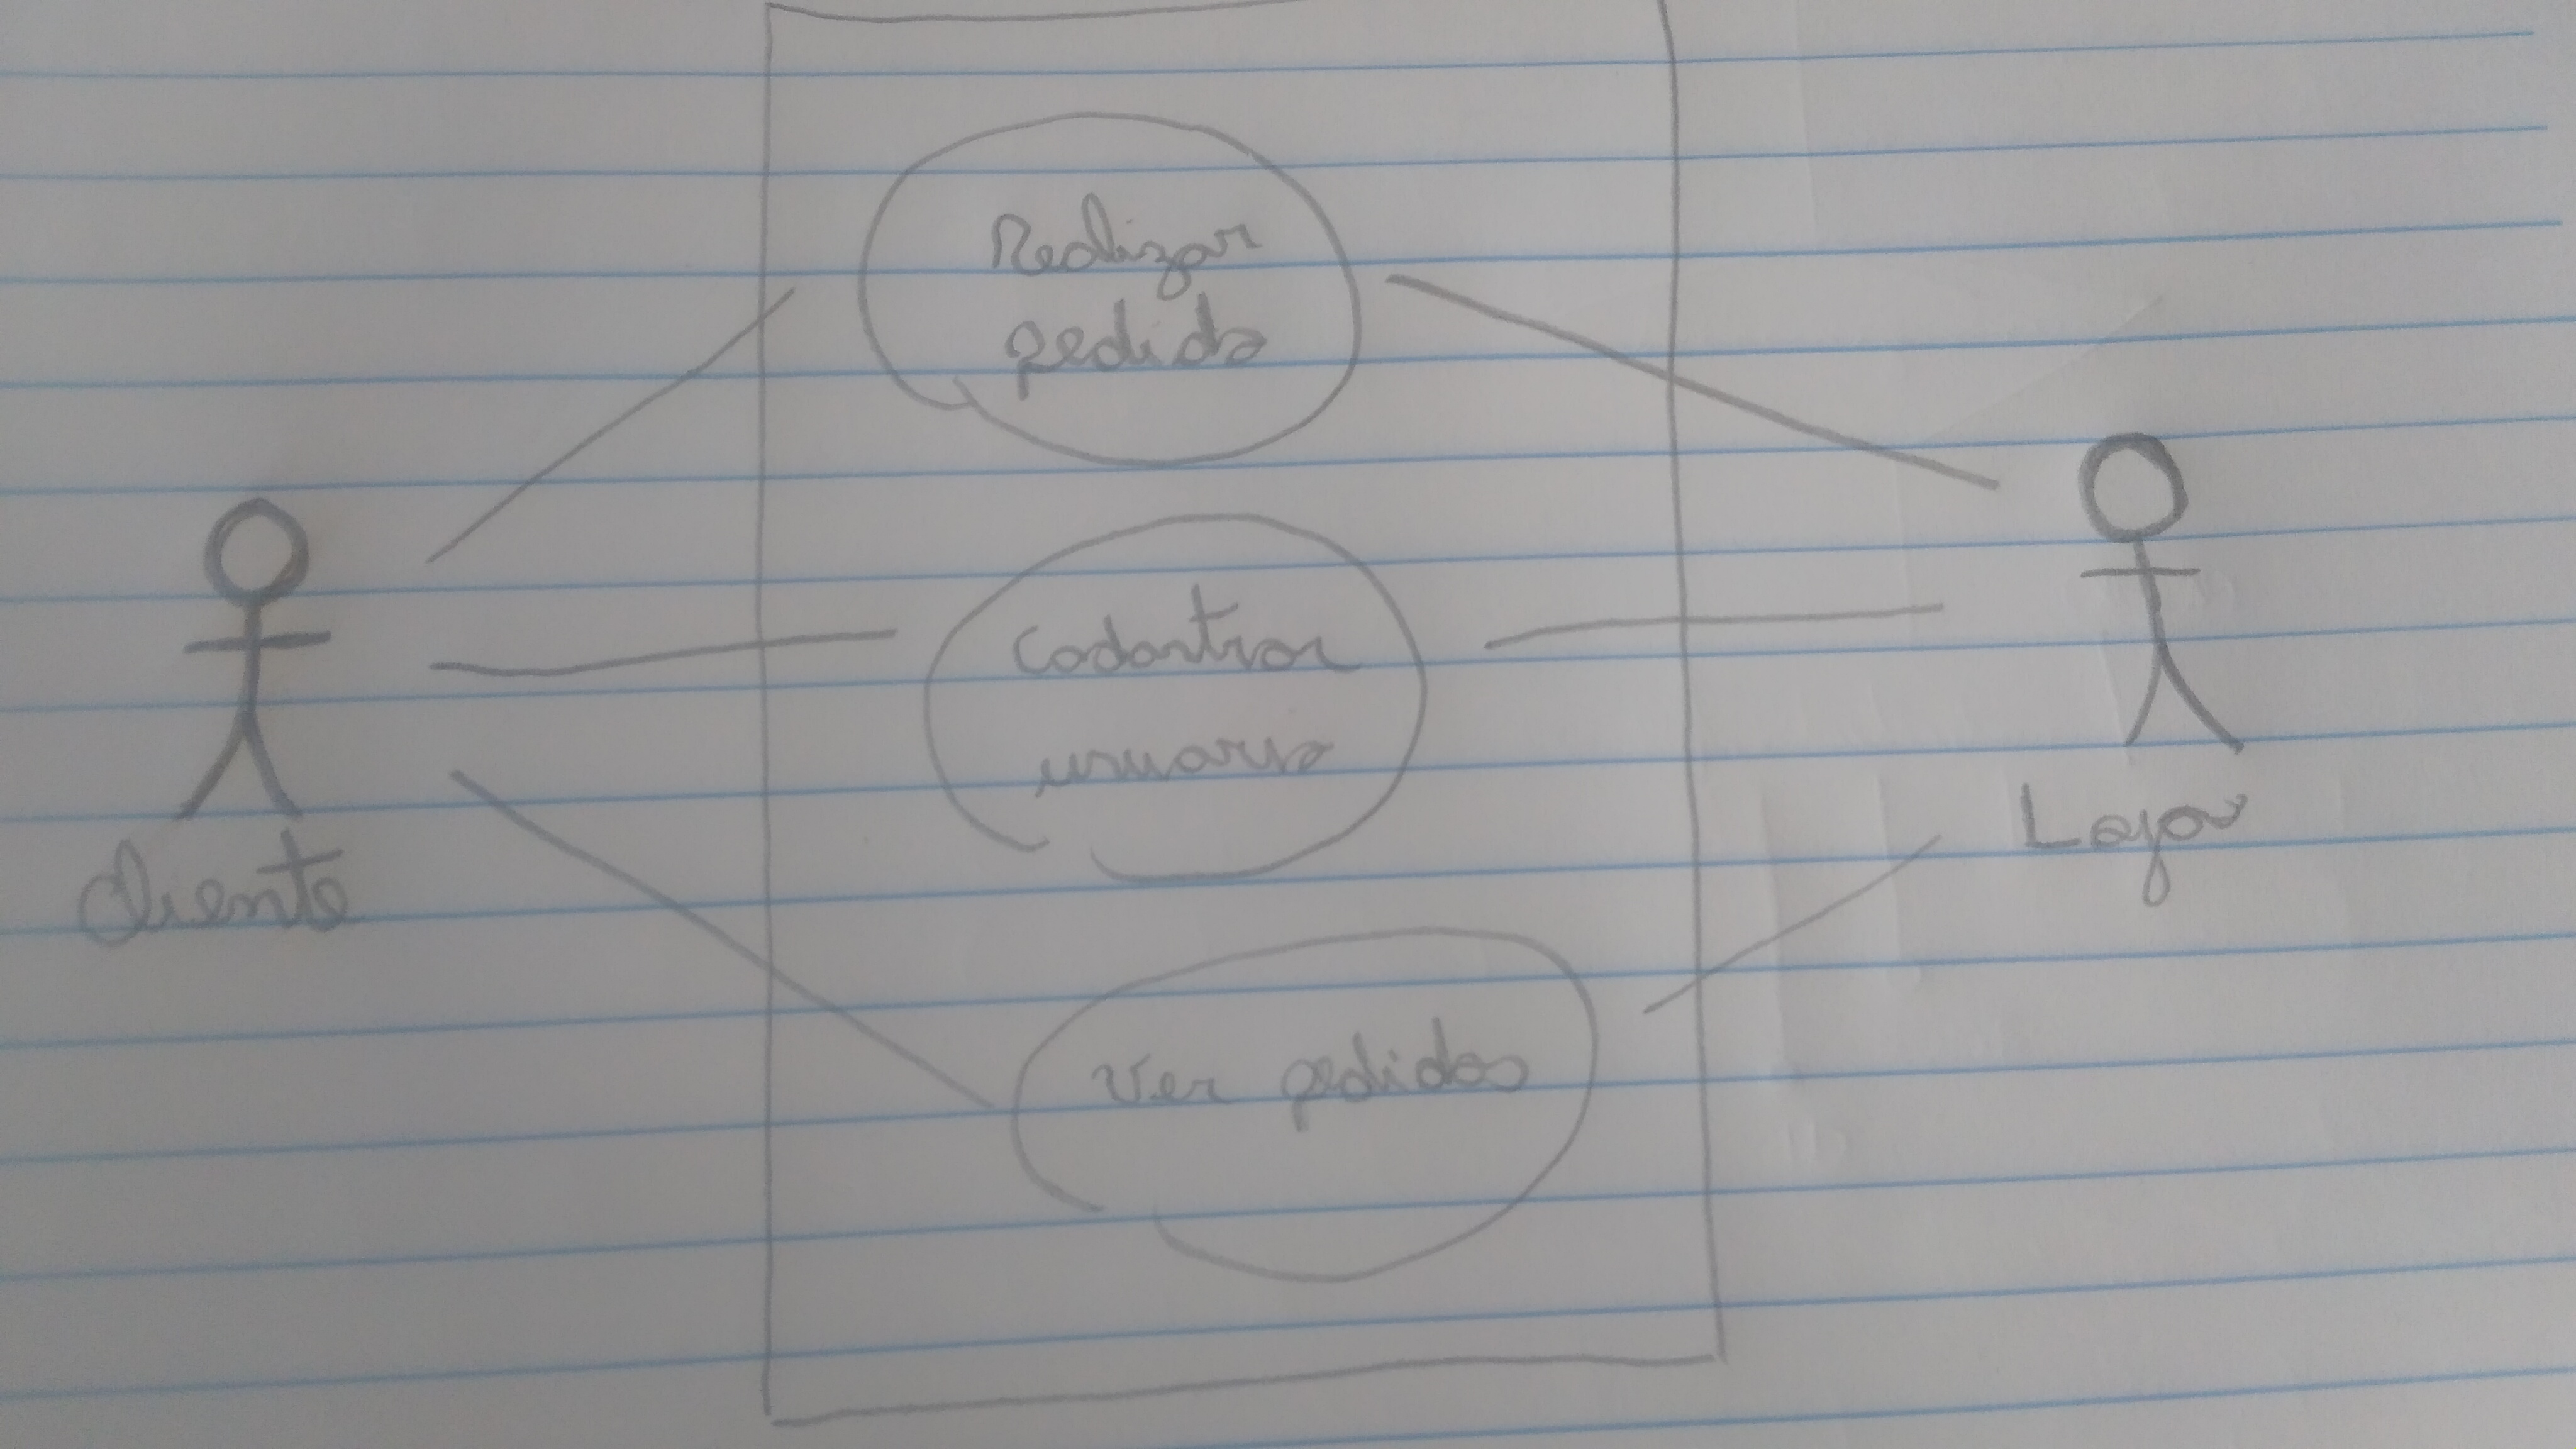 Cliente
Realizar
pedido
Cadastrar
usuario
Ver pedidos
Loja